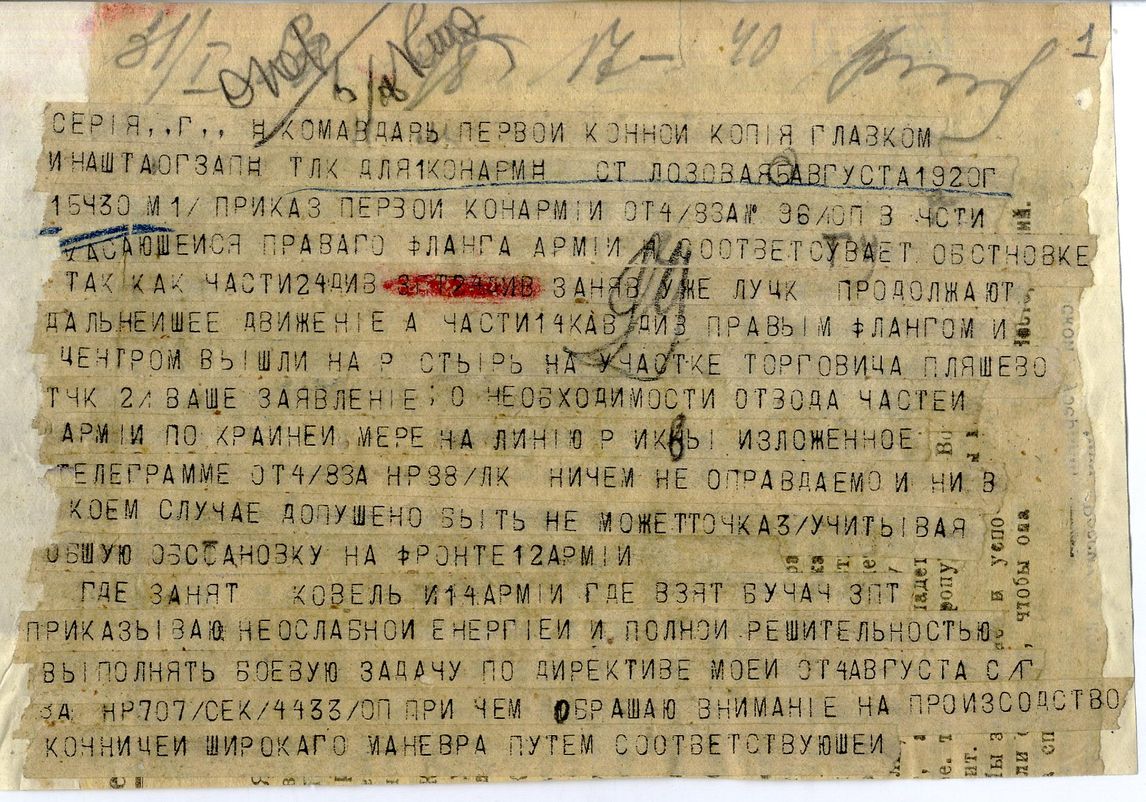 31/I 18 17 — 40
1
СЕРІЯ,,Г,, Н КОМАВДАРЬ ПЕРВОИ КОННОИ КОПІЯ ГЛАВКОМ
И НАШТАОГЗАПН ТЛК ДЛЯ1КОНАРМН СТ ЛОЗОВАЯ 6 АВГУСТА1920Г
15Ч30 М1/ ПРИКАЗ ПЕРВОИ КОНАРМІИ ОТ4/8ЗА№ 96/ОП В ЧСТИ
КАСАЮШЕИСЯ ПРАВАГО ФЛАНГА АРМІИ СООТВЕТСУВАЕТ ОБСТНОВКЕ
ТАК КАК ЧАСТИ24ДИВ ЗАНЯВ УЖЕ ЛУЧК ПРОДОЛЖАЮТ
ДАЛЬНЕИШЕЕ ДВИЖЕНІЕ А ЧАСТИ14КАВ ДИВ ПРАВЫМ ФЛАНГОМ И
ЦЕНТРОМ ВЫШЛИ НА Р СТЫРЬ НА УЧАСТКЕ ТОРГОВИЦА ПЛЯШЕВО
ТЧК 2/ ВАШЕ ЗАЯВЛЕНІЕ О НЕОБХОДИМОСТИ ОТВОДА ЧАСТЕИ
АРМІИ ПО КРАИНЕИ МЕРЕ НА ЛИНІЮ Р ИКВЫ ИЗЛОЖЕННОЕ
ТЕЛЕГРАММЕ ОТ4/8ЗА НР38/ЛК НИЧЕМ НЕ ОПРАВДАЕМО И НИ В
КОЕМ СЛУЧАЕ ДОПУШЕНО БЫТЬ НЕ МОЖЕТТОЧКА3/УЧИТЫВАЯ
ОБШУЮ ОБСТАНОВКУ НА ФРОНТЕ12АРМІИ
ГДЕ ЗАНЯТ КОВЕЛЬ И14АРМІИ ГДЕ ВЗЯТ БУЧАЧ ЗПТ
ПРИКАЗЫВАЮ НЕОСЛАБНОИ ЕНЕРГІЕИ И ПОЛНОИ РЕШИТЕЛЬНОСТЬЮ
ВЫПОЛНЯТЬ БОЕВУЮ ЗАДАЧУ ПО ДИРЕКТИВЕ МОЕИ ОТ4АВГУСТА С/Г
ЗА НР707/СЕК/4433/ОП ПРИ ЧЕМ ОБРАШАЮ ВНИМАНІЕ НА ПРОИЗСОДСТВО
КОННИЧЕИ ШИРОКАГО МАНЕВРА ПУТЕМ СООТВЕТСТВУЮШЕИ